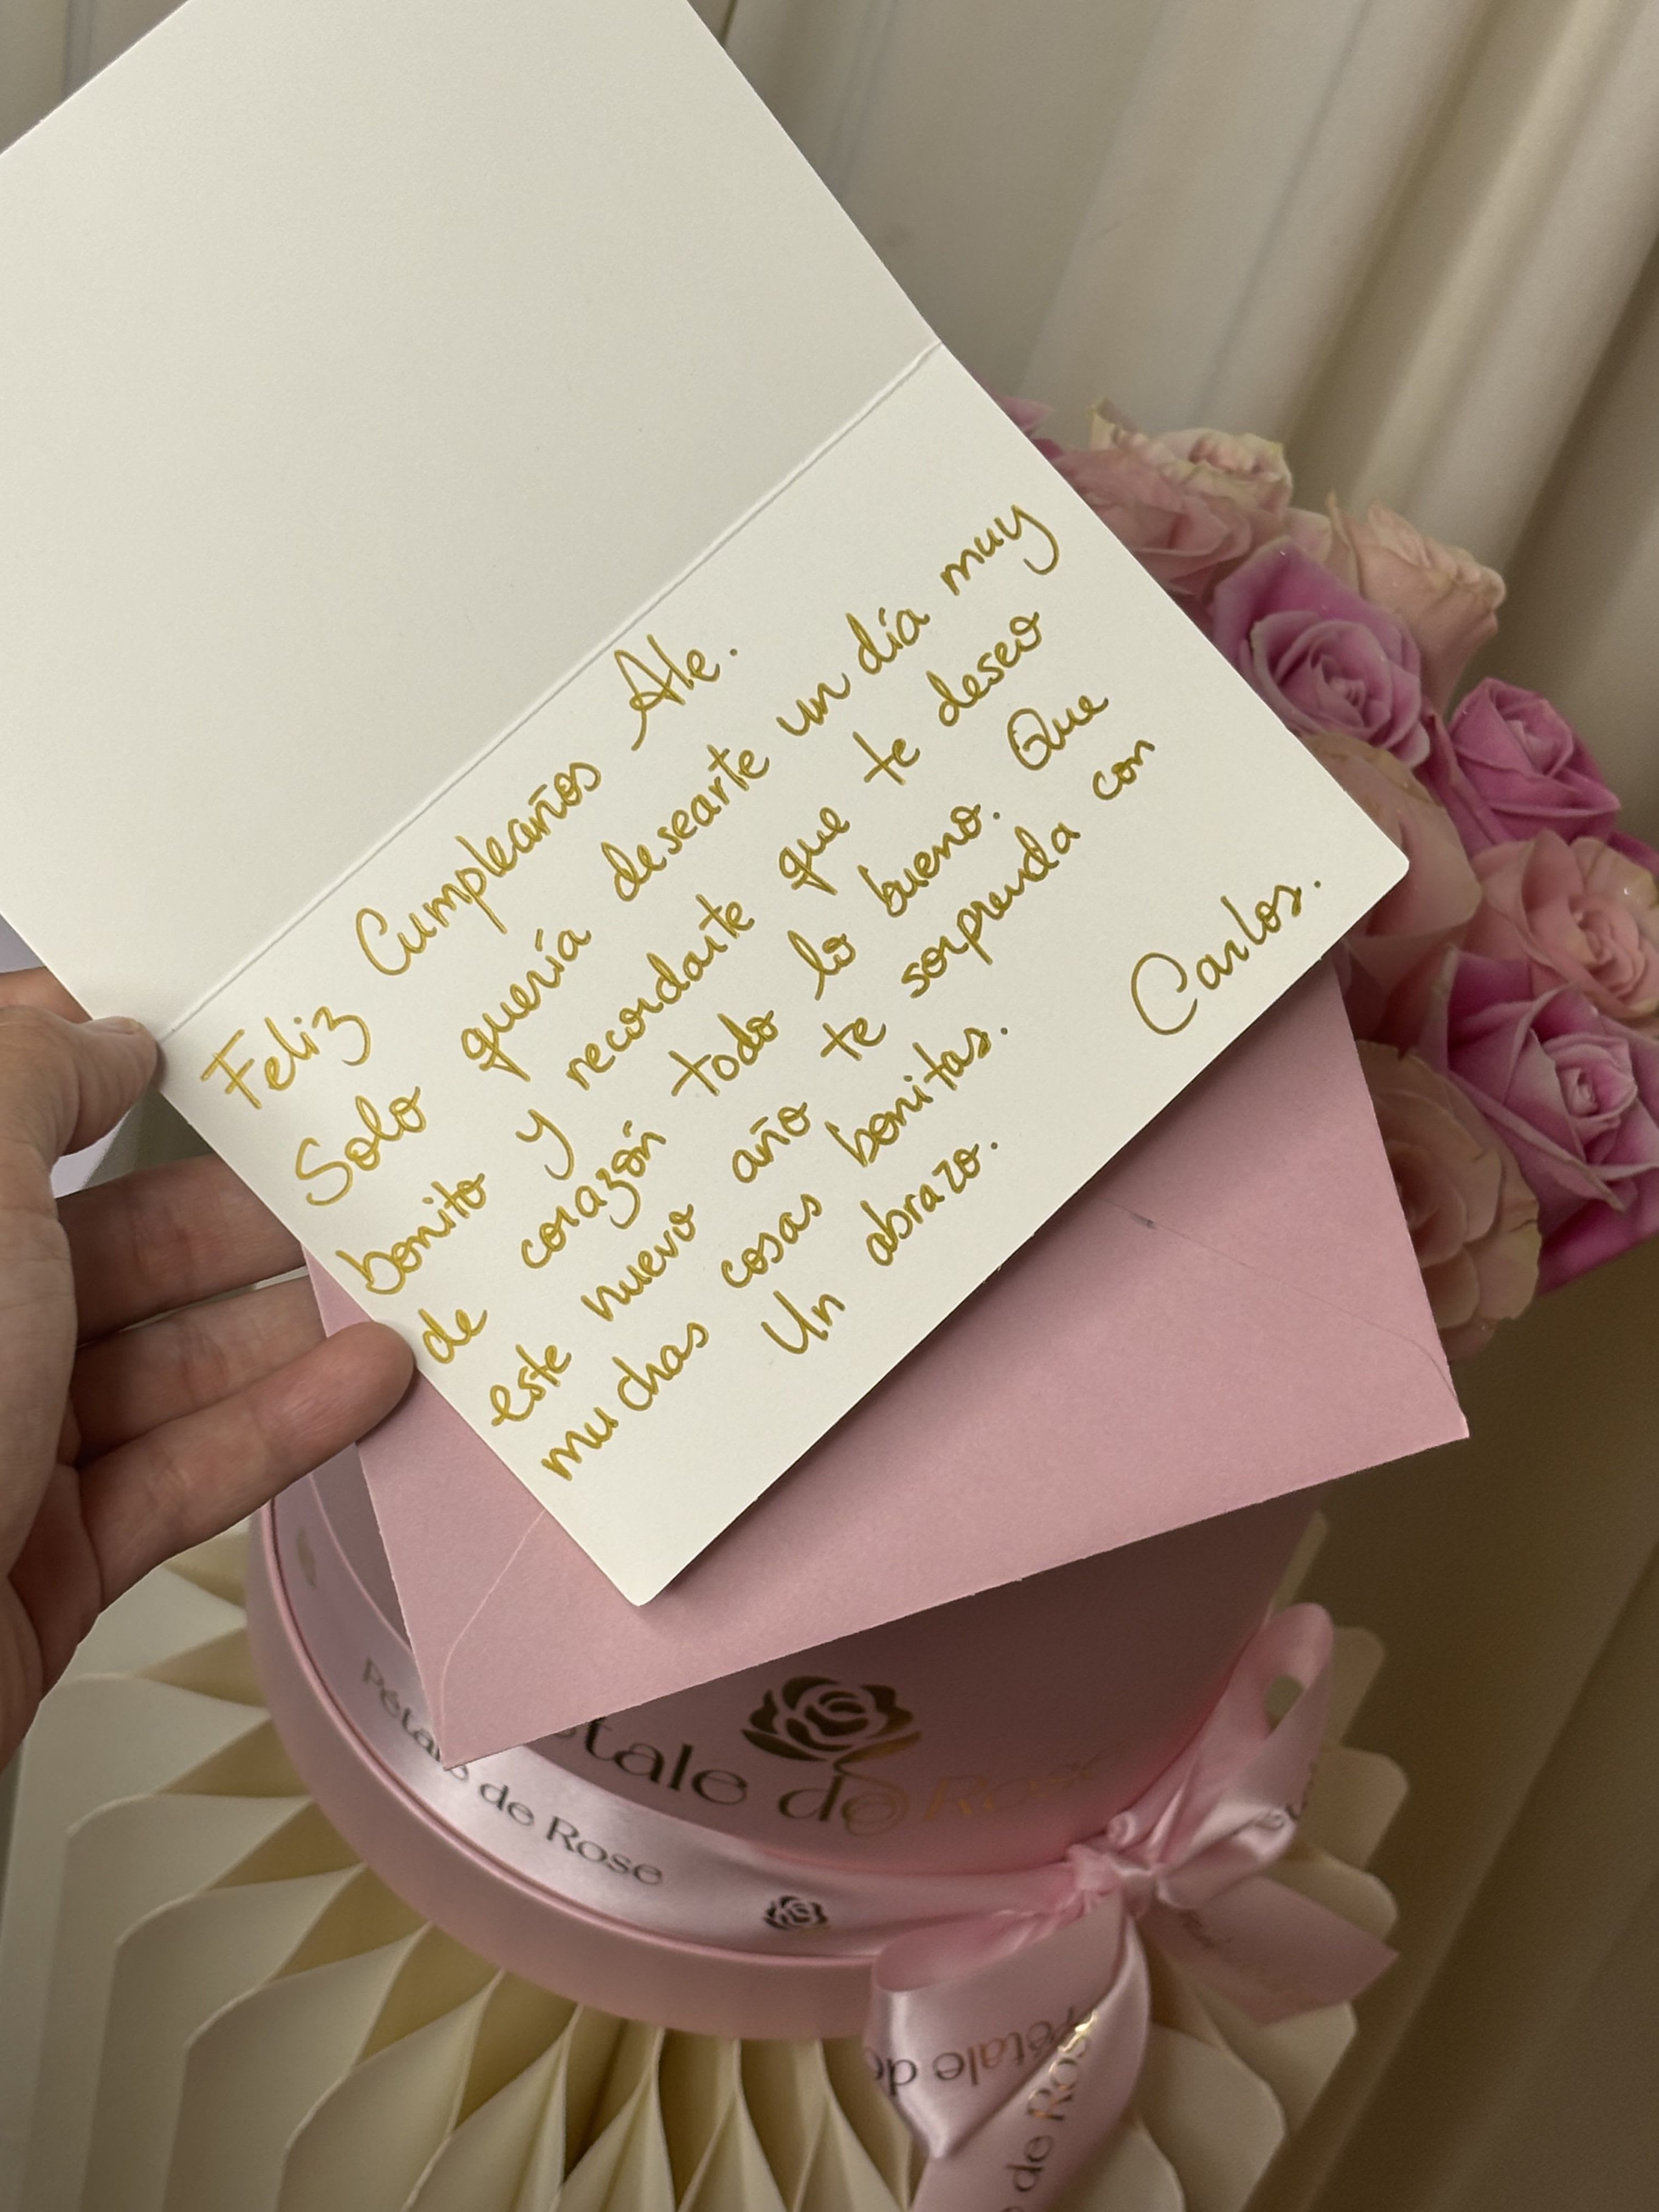 Feliz Cumpleaños Ale.
Solo quería desearte un día muy
bonito y recordarte que te deseo
de corazón todo lo bueno. Que
este nuevo año te sorprenda con
muchas cosas bonitas.
Un abrazo.
Carlos.
tale de Rose
Pétale de Rose
Pétale de
de Rose